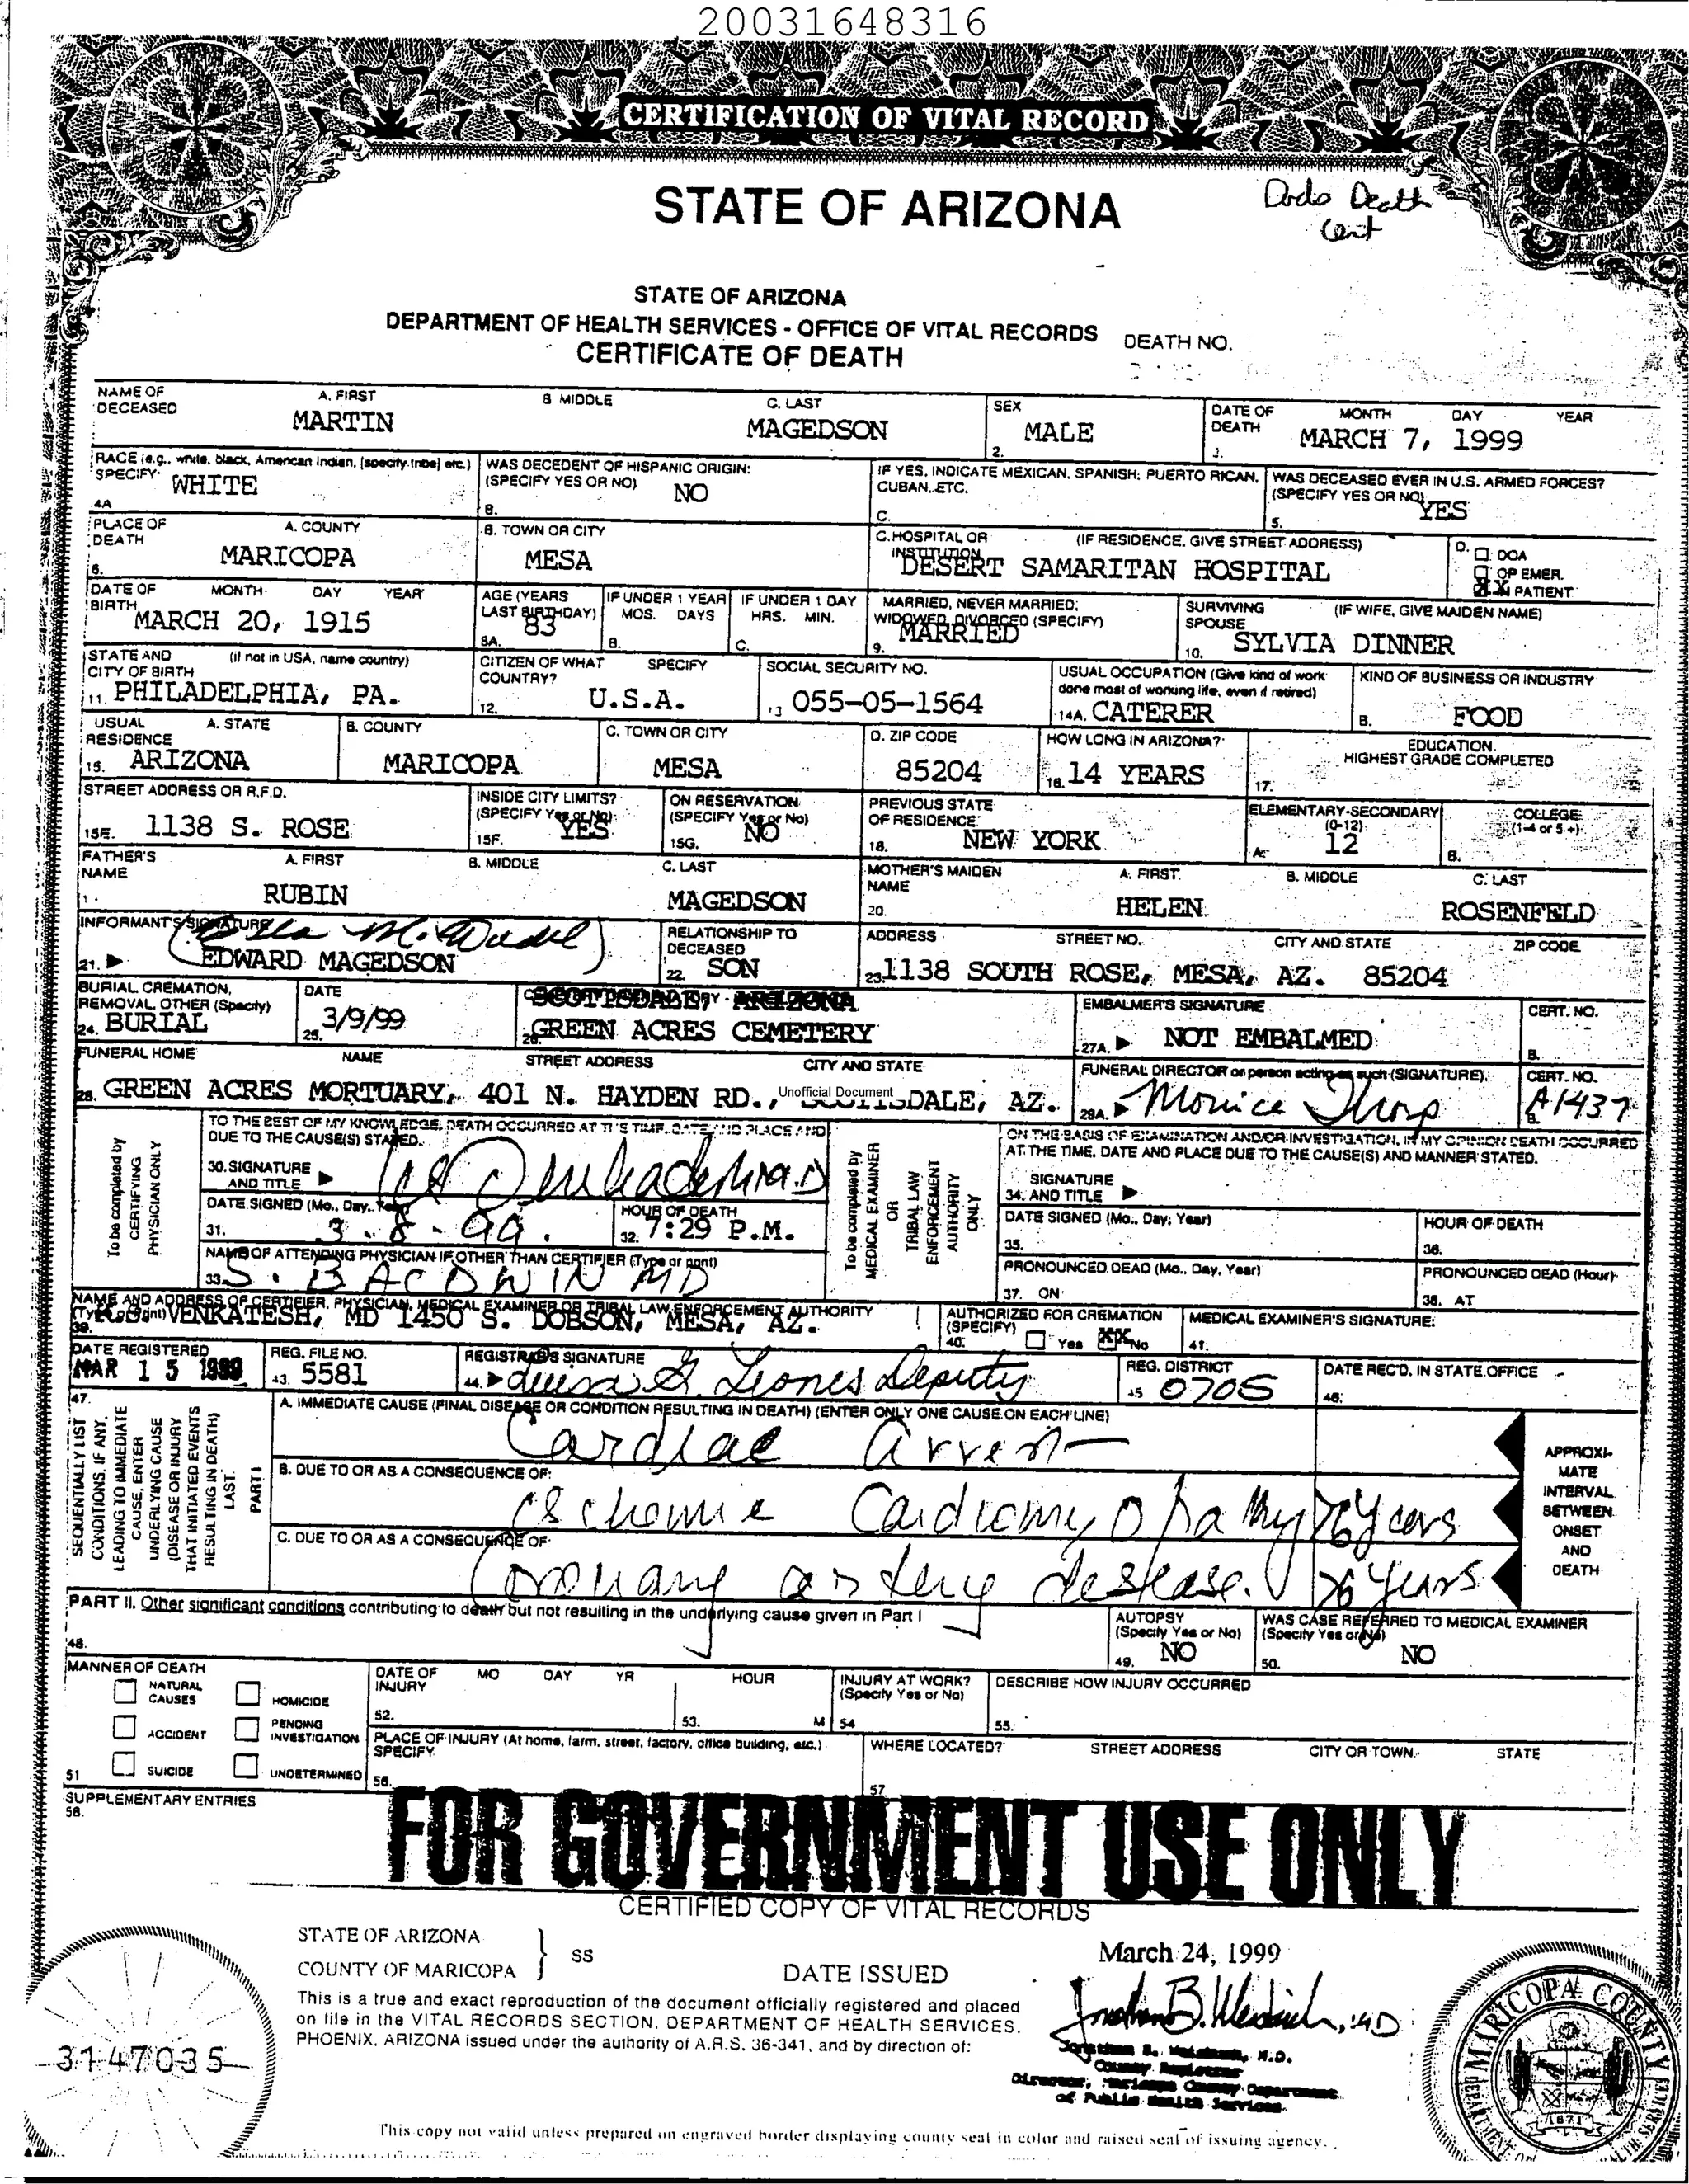 20031648316
CERTIFICATION OF VITAL RECORD
STATE OF ARIZONA
Dads Death
Cert
STATE OF ARIZONA
DEPARTMENT OF HEALTH SERVICES - OFFICE OF VITAL RECORDS DEATH NO.
CERTIFICATE OF DEATH
NAME OF DECEASED A. FIRST B MIDDLE C. LAST SEX DATE OF DEATH MONTH DAY YEAR
MARTIN MAGEDSON 2. MALE 3. MARCH 7, 1999
RACE (e.g., white, black, American Indian, (specify tribe) etc.) SPECIFY WAS DECEDENT OF HISPANIC ORIGIN: (SPECIFY YES OR NO) IF YES, INDICATE MEXICAN, SPANISH, PUERTO RICAN, CUBAN, ETC. WAS DECEASED EVER IN U.S. ARMED FORCES? (SPECIFY YES OR NO)
4A WHITE B. NO C. 5. YES
PLACE OF DEATH A. COUNTY B. TOWN OR CITY C. HOSPITAL OR INSTITUTION (IF RESIDENCE, GIVE STREET ADDRESS) D. DOA
OP EMER.
6. MARICOPA MESA DESERT SAMARITAN HOSPITAL XX IN PATIENT
DATE OF BIRTH MONTH DAY YEAR AGE (YEARS LAST BIRTHDAY) IF UNDER 1 YEAR MOS. DAYS IF UNDER 1 DAY HRS. MIN. MARRIED, NEVER MARRIED, WIDOWED, DIVORCED (SPECIFY) SURVIVING SPOUSE (IF WIFE, GIVE MAIDEN NAME)
MARCH 20, 1915 8A. 83 B. C. 9. MARRIED 10. SYLVIA DINNER
STATE AND CITY OF BIRTH (if not in USA, name country) CITIZEN OF WHAT COUNTRY? SPECIFY SOCIAL SECURITY NO. USUAL OCCUPATION (Give kind of work done most of working life, even if retired) KIND OF BUSINESS OR INDUSTRY
11. PHILADELPHIA, PA. 12. U.S.A. 13 055-05-1564 14A. CATERER B. FOOD
USUAL RESIDENCE A. STATE B. COUNTY C. TOWN OR CITY D. ZIP CODE HOW LONG IN ARIZONA? EDUCATION HIGHEST GRADE COMPLETED
15. ARIZONA MARICOPA MESA 85204 16. 14 YEARS 17.
STREET ADDRESS OR R.F.D. INSIDE CITY LIMITS? (SPECIFY Yes or No) ON RESERVATION (SPECIFY Yes or No) PREVIOUS STATE OF RESIDENCE ELEMENTARY-SECONDARY (0-12) COLLEGE (1-4 or 5+)
15E. 1138 S. ROSE 15F. YES 15G. NO 18. NEW YORK A. 12 B.
FATHER'S NAME A. FIRST B. MIDDLE C. LAST MOTHER'S MAIDEN NAME A. FIRST B. MIDDLE C. LAST
RUBIN MAGEDSON 20. HELEN ROSENFELD
INFORMANT'S SIGNATURE RELATIONSHIP TO DECEASED ADDRESS STREET NO. CITY AND STATE ZIP CODE
21. EDWARD MAGEDSON 22. SON 23. 1138 SOUTH ROSE, MESA, AZ. 85204
BURIAL, CREMATION, REMOVAL, OTHER (Specify) DATE SCOTTSDALE, ARIZONA EMBALMER'S SIGNATURE CERT. NO.
24. BURIAL 25. 3/9/99 26. GREEN ACRES CEMETERY 27A. NOT EMBALMED B.
FUNERAL HOME NAME STREET ADDRESS CITY AND STATE FUNERAL DIRECTOR or person acting as such (SIGNATURE) CERT. NO.
28. GREEN ACRES MORTUARY, 401 N. HAYDEN RD., SCOTTSDALE, AZ. 29A. Monica Thorp B. A1437
Unofficial Document
To be completed by CERTIFYING PHYSICIAN ONLY
TO THE BEST OF MY KNOWLEDGE, DEATH OCCURRED AT THE TIME, DATE AND PLACE AND DUE TO THE CAUSE(S) STATED.
30. SIGNATURE AND TITLE
DATE SIGNED (Mo., Day, Year) HOUR OF DEATH
31. 3-8-99 32. 7:29 P.M.
NAME OF ATTENDING PHYSICIAN IF OTHER THAN CERTIFIER (Type or print)
33. S. BALDWIN MD
To be completed by MEDICAL EXAMINER OR TRIBAL LAW ENFORCEMENT AUTHORITY ONLY
ON THE BASIS OF EXAMINATION AND/OR INVESTIGATION, IN MY OPINION DEATH OCCURRED AT THE TIME, DATE AND PLACE DUE TO THE CAUSE(S) AND MANNER STATED.
SIGNATURE
34. AND TITLE
DATE SIGNED (Mo., Day, Year) HOUR OF DEATH
35. 36.
PRONOUNCED DEAD (Mo., Day, Year) PRONOUNCED DEAD (Hour)
37. ON 38. AT
NAME AND ADDRESS OF CERTIFIER, PHYSICIAN, MEDICAL EXAMINER OR TRIBAL LAW ENFORCEMENT AUTHORITY (Type or print) AUTHORIZED FOR CREMATION (SPECIFY) MEDICAL EXAMINER'S SIGNATURE:
39. VENKATESH, MD 1450 S. DOBSON, MESA, AZ. 40. Yes XX No 41.
DATE REGISTERED REG. FILE NO. REGISTRAR'S SIGNATURE REG. DISTRICT DATE REC'D. IN STATE OFFICE
MAR 15 1999 43. 5581 44. Leones Deputy 45 0705 46.
47. SEQUENTIALLY LIST CONDITIONS, IF ANY, LEADING TO IMMEDIATE CAUSE, ENTER UNDERLYING CAUSE (DISEASE OR INJURY THAT INITIATED EVENTS RESULTING IN DEATH) LAST. PART I
A. IMMEDIATE CAUSE (FINAL DISEASE OR CONDITION RESULTING IN DEATH) (ENTER ONLY ONE CAUSE ON EACH LINE)
Cardiac Arrest
B. DUE TO OR AS A CONSEQUENCE OF:
Ischemic Cardiomyopathy >6 years
C. DUE TO OR AS A CONSEQUENCE OF:
Coronary artery disease. >6 years
APPROXIMATE INTERVAL BETWEEN ONSET AND DEATH
PART II. Other significant conditions contributing to death but not resulting in the underlying cause given in Part I AUTOPSY (Specify Yes or No) WAS CASE REFERRED TO MEDICAL EXAMINER (Specify Yes or No)
48. 49. NO 50. NO
MANNER OF DEATH DATE OF INJURY MO DAY YR HOUR INJURY AT WORK? (Specify Yes or No) DESCRIBE HOW INJURY OCCURRED
NATURAL CAUSES HOMICIDE 52. 53. M 54 55.
ACCIDENT PENDING INVESTIGATION PLACE OF INJURY (At home, farm, street, factory, office building, etc.) SPECIFY WHERE LOCATED? STREET ADDRESS CITY OR TOWN STATE
51 SUICIDE UNDETERMINED 56. 57
SUPPLEMENTARY ENTRIES
58.
FOR GOVERNMENT USE ONLY
CERTIFIED COPY OF VITAL RECORDS
STATE OF ARIZONA
COUNTY OF MARICOPA } SS
DATE ISSUED March 24, 1999
This is a true and exact reproduction of the document officially registered and placed
on file in the VITAL RECORDS SECTION, DEPARTMENT OF HEALTH SERVICES,
PHOENIX, ARIZONA issued under the authority of A.R.S. 36-341, and by direction of:
Jonathan B. Weisbuch, M.D.
County Registrar
Director, Maricopa County Department
of Public Health Services
3147035
MARICOPA COUNTY
1871
This copy not valid unless prepared on engraved border displaying county seal in color and raised seal of issuing agency.